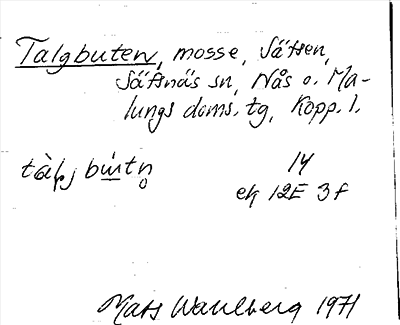 Talgbuten, mosse, Sätsen,
Säfsnäs sn, Nås o. Ma-
lungs doms. tg, Kopp. l.
14
ek 12E 3f
Mats Wahlberg 1971